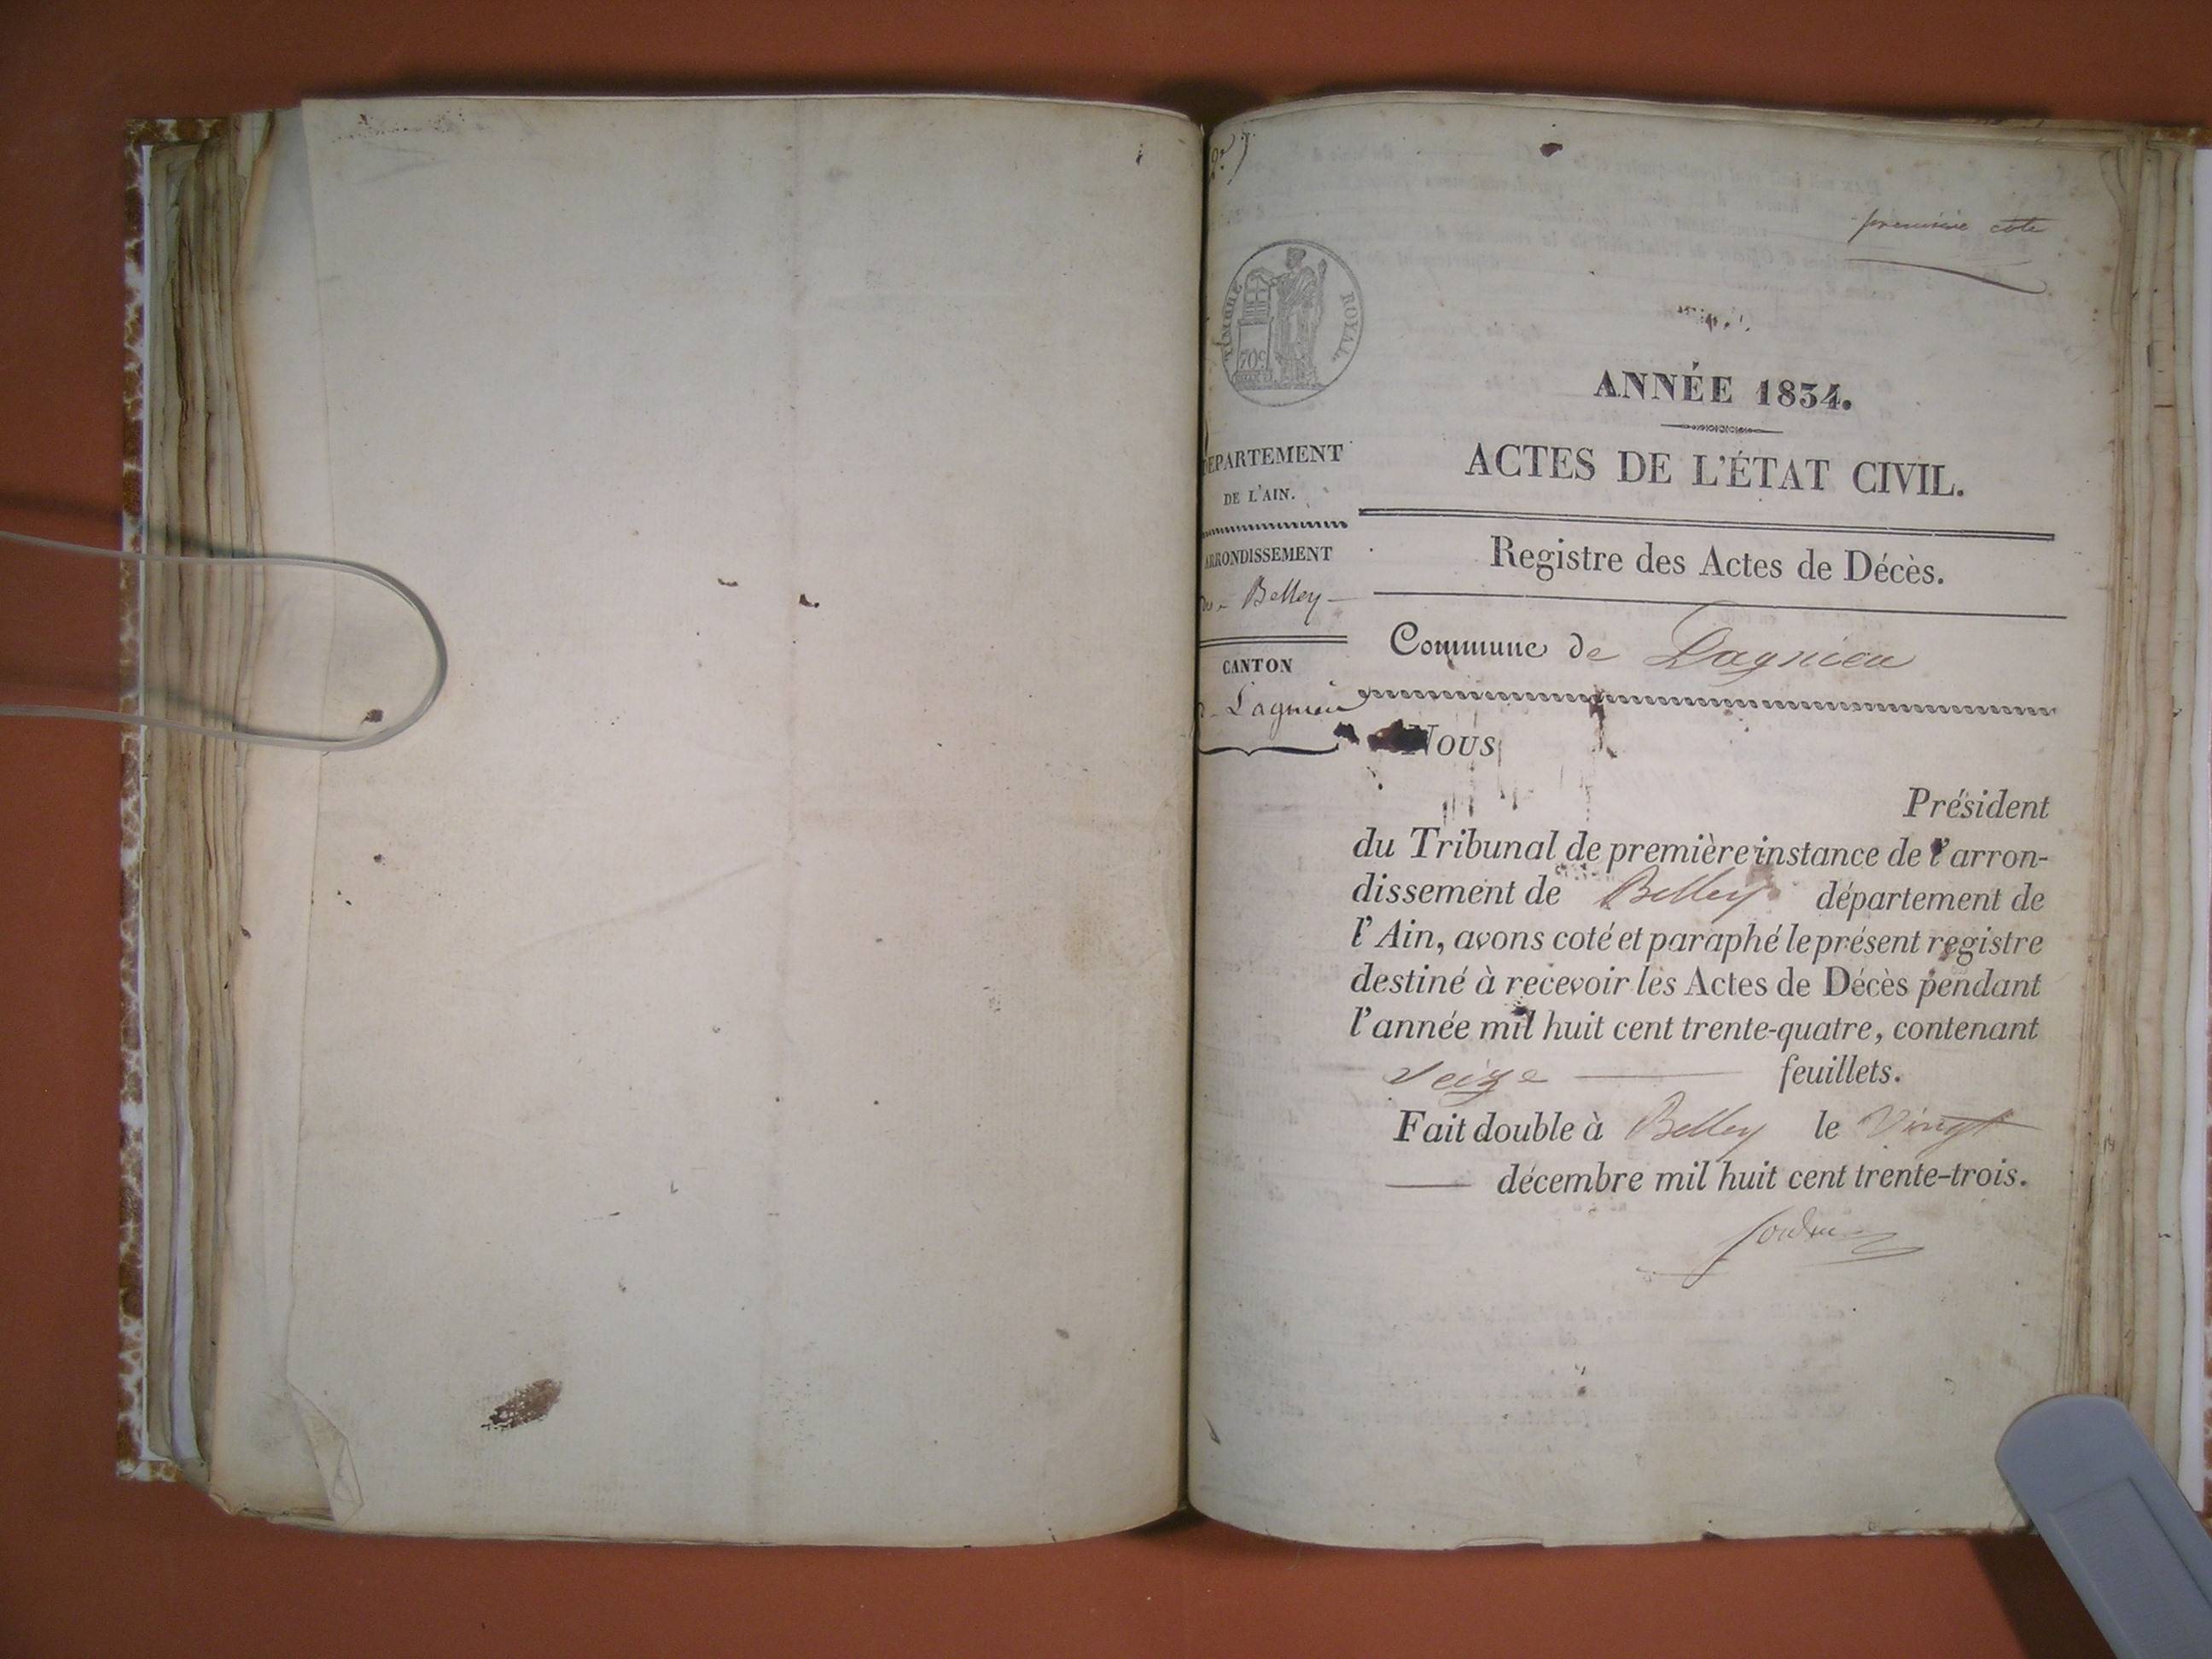 première cote
TIMBRE ROYAL
70c
ANNÉE 1834.
ACTES DE L'ÉTAT CIVIL.
DEPARTEMENT
DE L'AIN.
ARRONDISSEMENT
de Belley
CANTON
Lagnieu
Registre des Actes de Décès.
Commune de Lagnieu
Nous
Président
du Tribunal de première instance de l'arron-
dissement de Belley département de
l'Ain, avons coté et paraphé le présent registre
destiné à recevoir les Actes de Décès pendant
l'année mil huit cent trente-quatre, contenant
seize feuillets.
Fait double à Belley le vingt
décembre mil huit cent trente-trois.